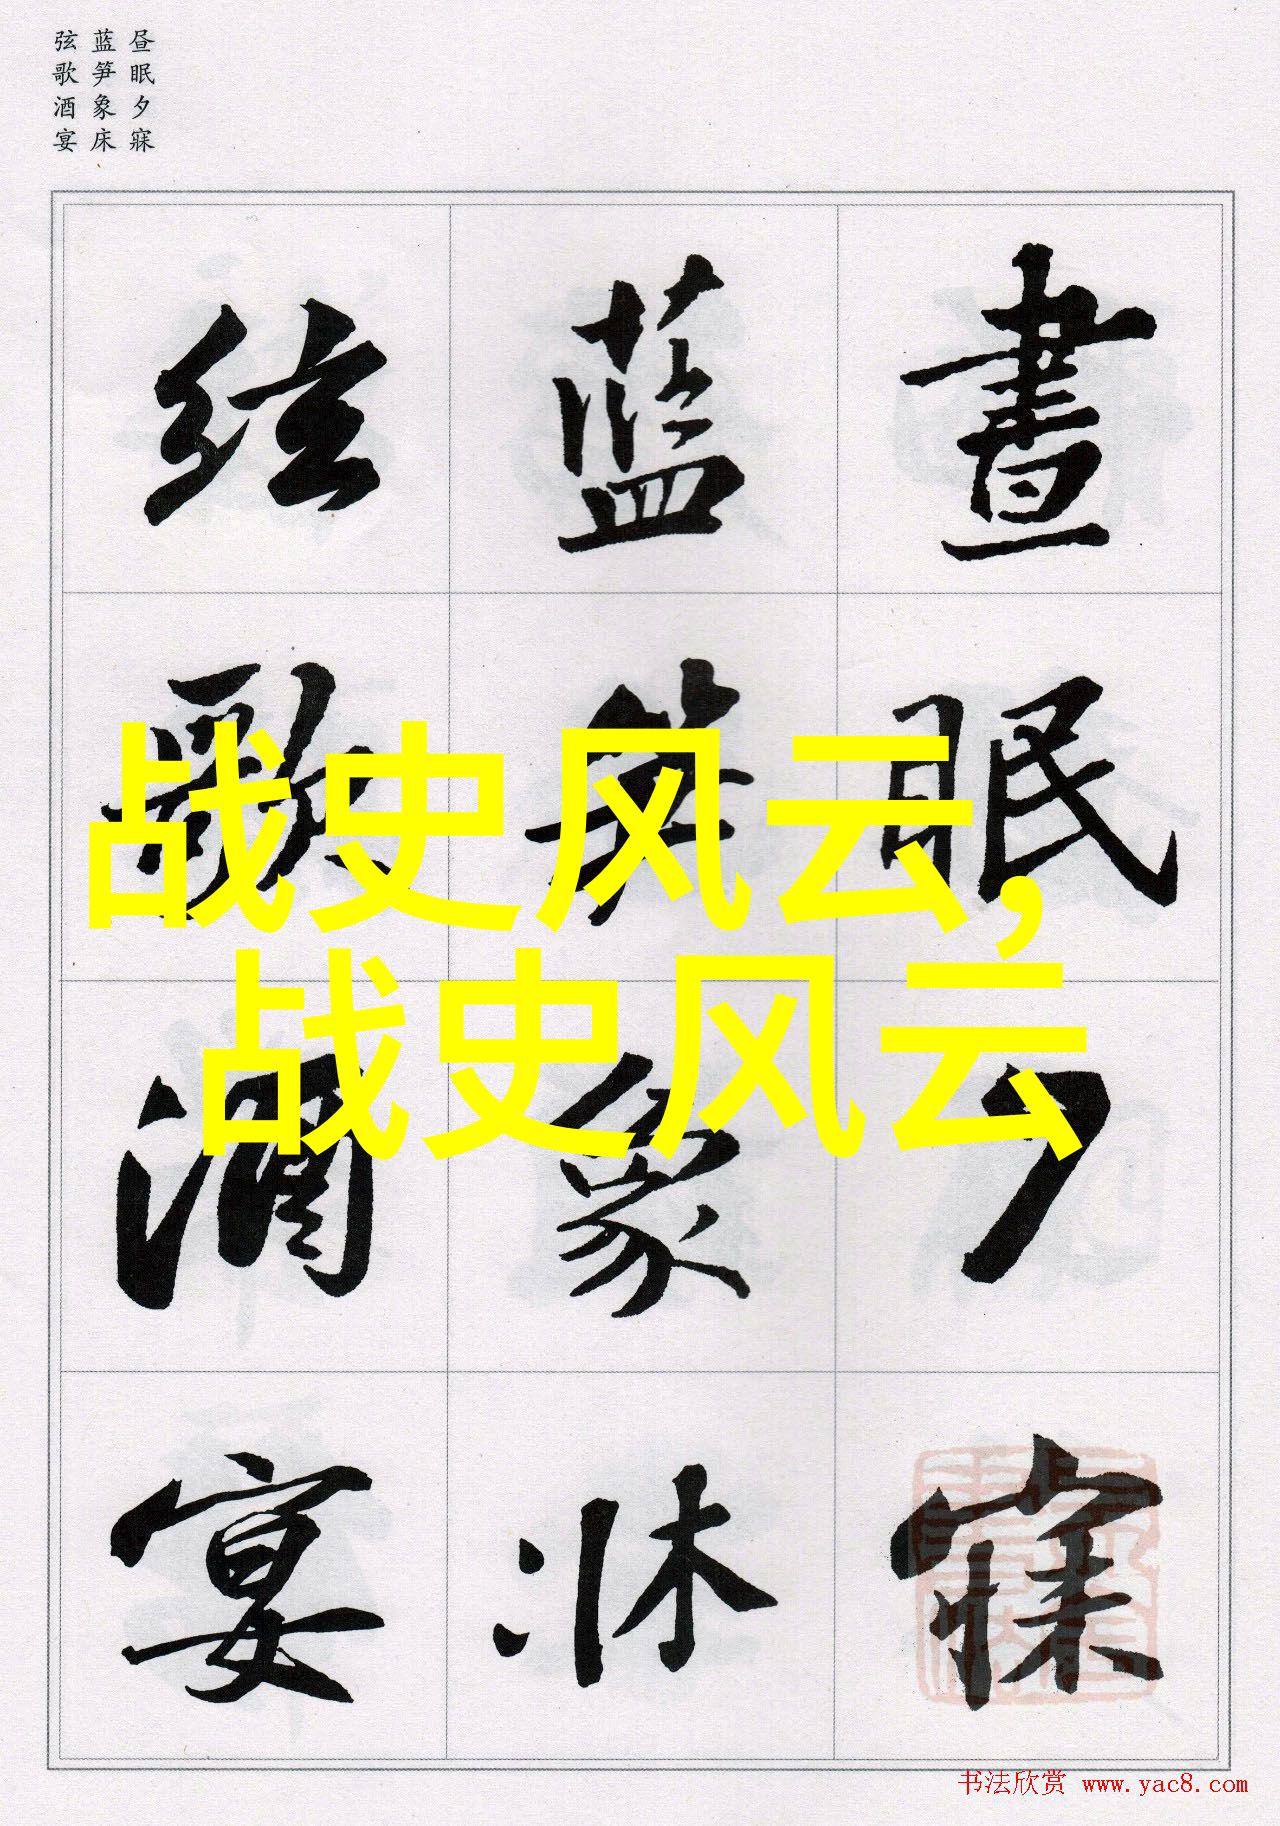 昼眠夕寐
蓝笋象床
弦歌酒宴
晝眠夕寐
藍笋象牀
弦歌酒宴
战史风云,
战史风云
书法欣赏 www.yac8.com